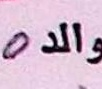 والد ه